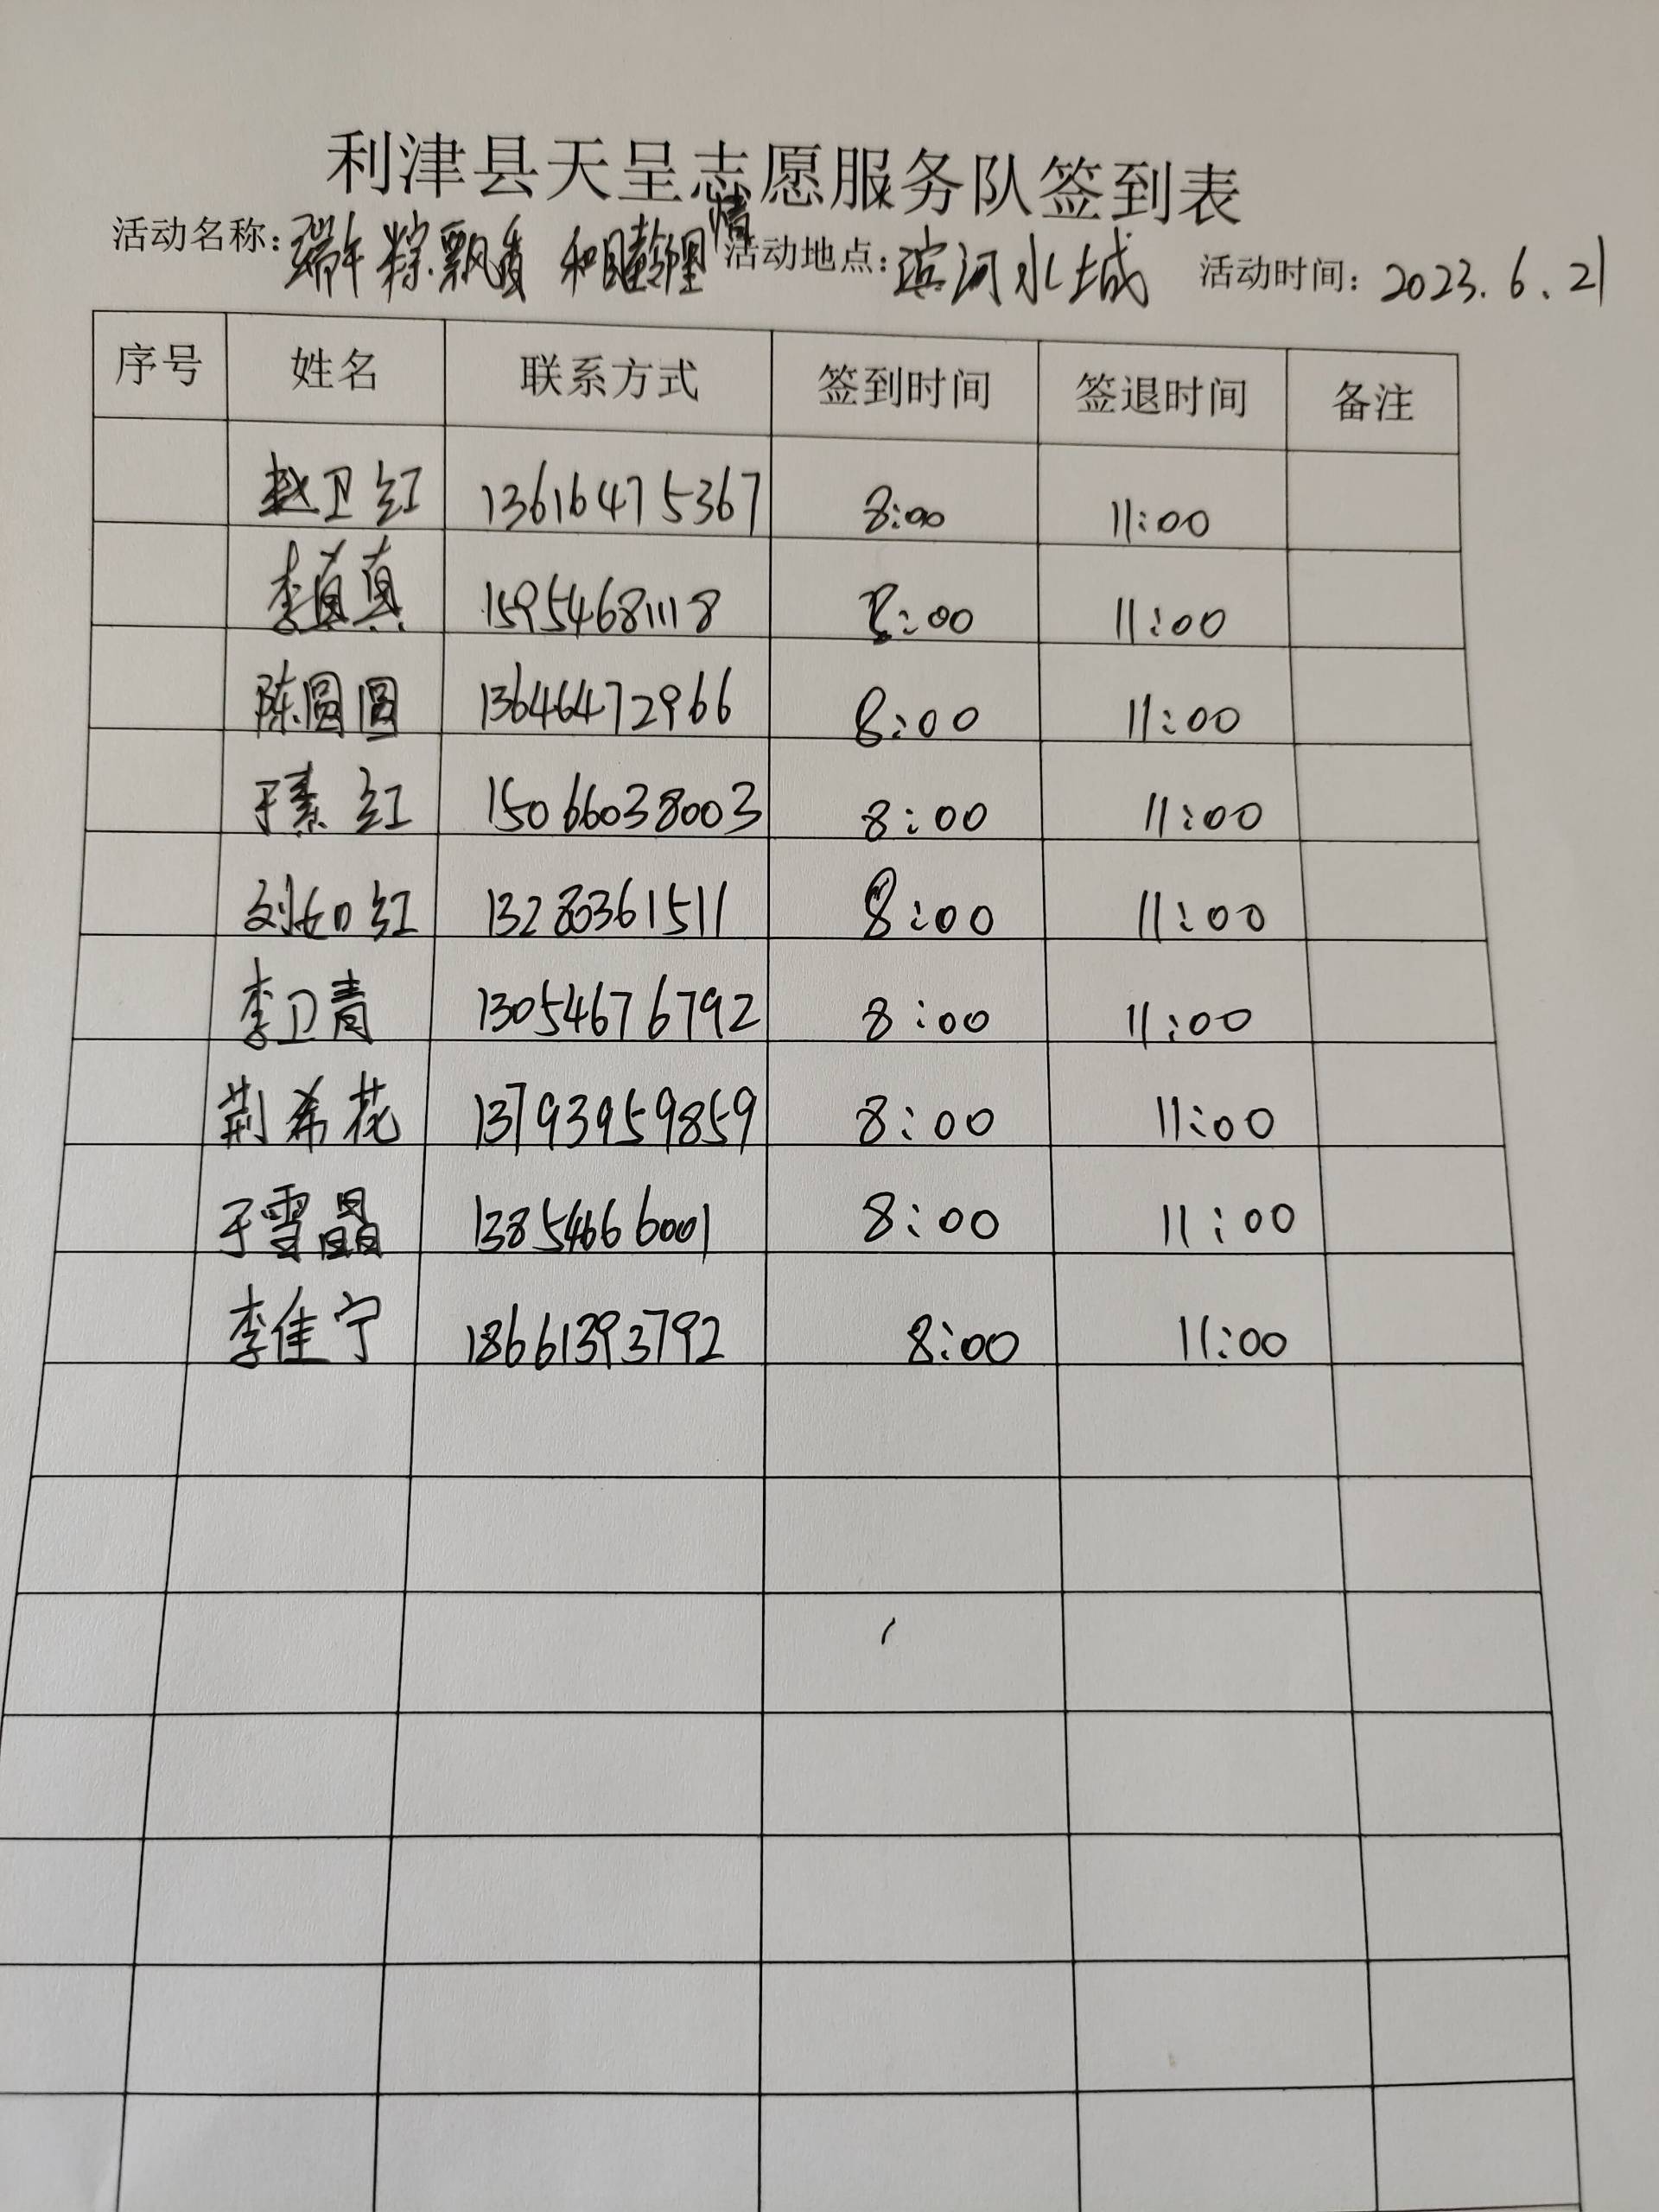 利津县天呈志愿服务队签到表
活动名称：端午粽飘香 和睦邻里情 活动地点：滨河水城 活动时间：2023.6.21
序号 姓名 联系方式 签到时间 签退时间 备注
赵卫红 13616475367 8:00 11:00
李真真 15954681118 8:00 11:00
陈圆圆 13646472966 8:00 11:00
于素红 15066038003 8:00 11:00
刘如红 13280361511 8:00 11:00
李卫青 13054676792 8:00 11:00
荆希花 13793959859 8:00 11:00
于雪晶 13854666001 8:00 11:00
李佳宁 18661393792 8:00 11:00